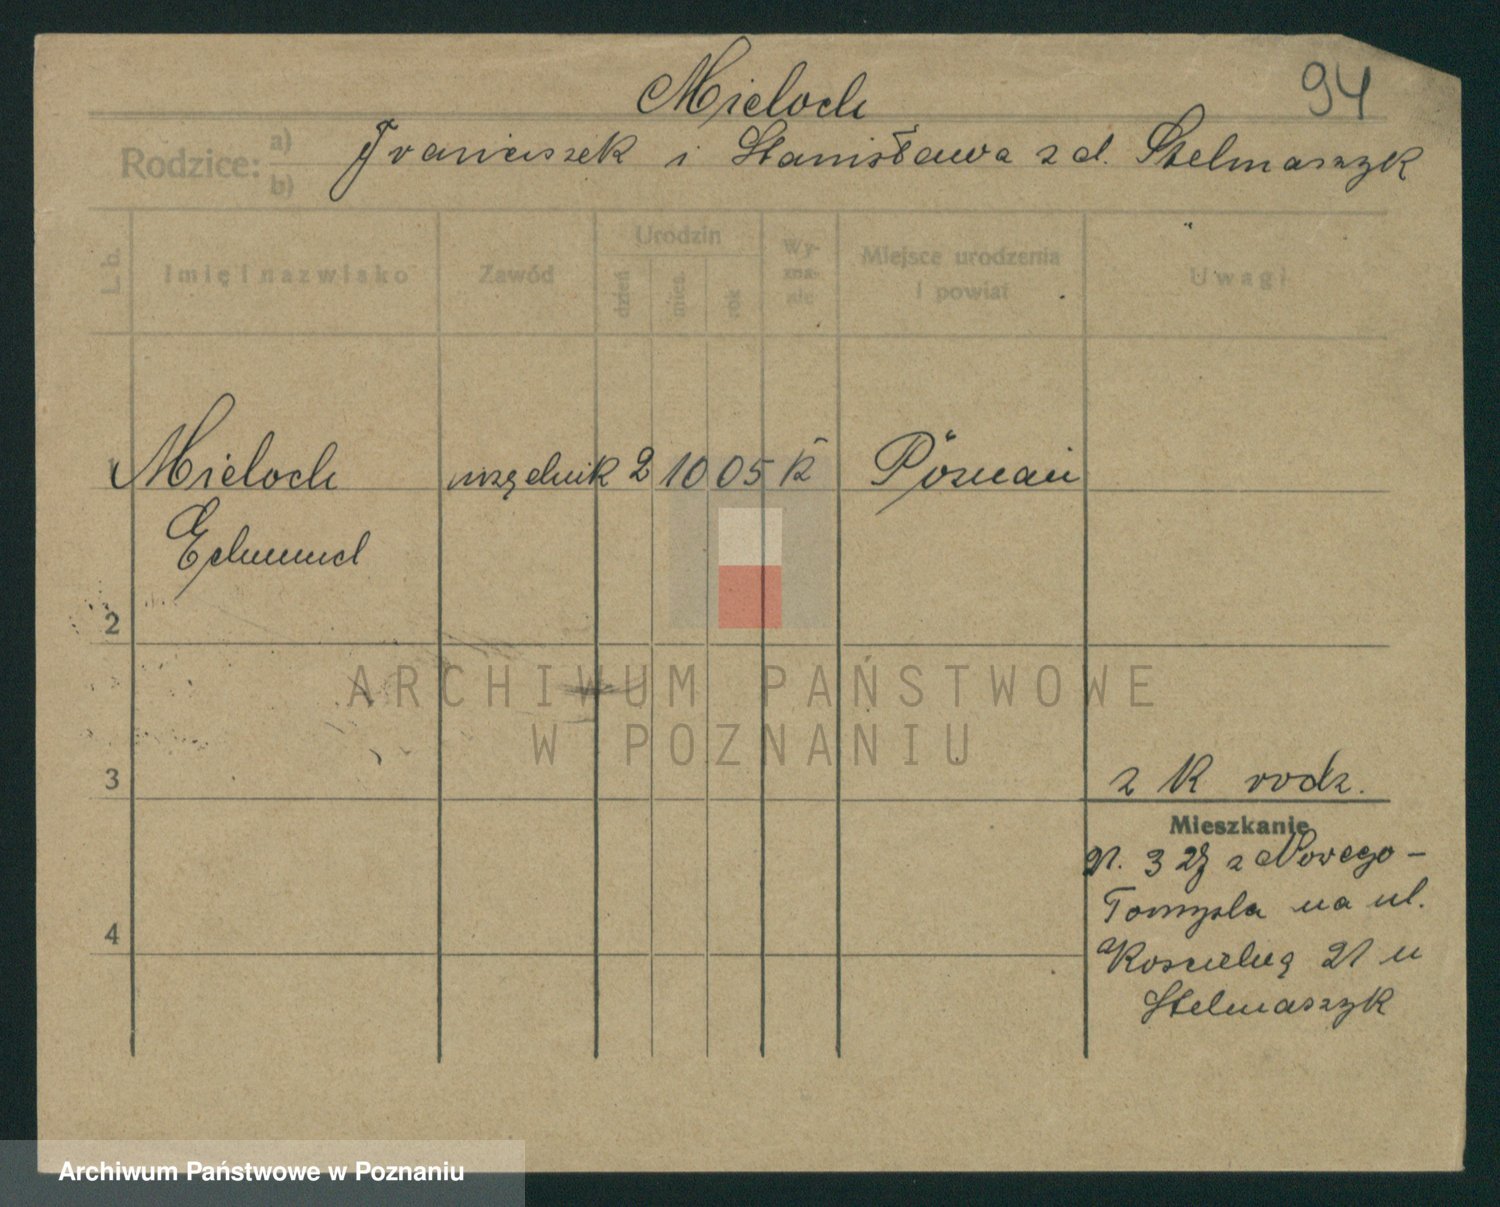 Mieloch
94
Rodzice: a) b) Franciszek i Stanisława z d. Stelmaszyk
L. b.
Imię i nazwisko
Zawód
Urodzin
dzień
mies.
rok
Wy-
zna-
nie
Miejsce urodzenia
i powiat
Uwagi
1 Mieloch urzędnik 2 10 05 k Poznań
Edmund
2
ARCHIWUM PAŃSTWOWE
W POZNANIU
3
z k rodz.
Mieszkanie
21. 3 28 z Nowego-
Tomyśla na ul.
4
Kościelną 21 u
Stelmaszyk
Archiwum Państwowe w Poznaniu